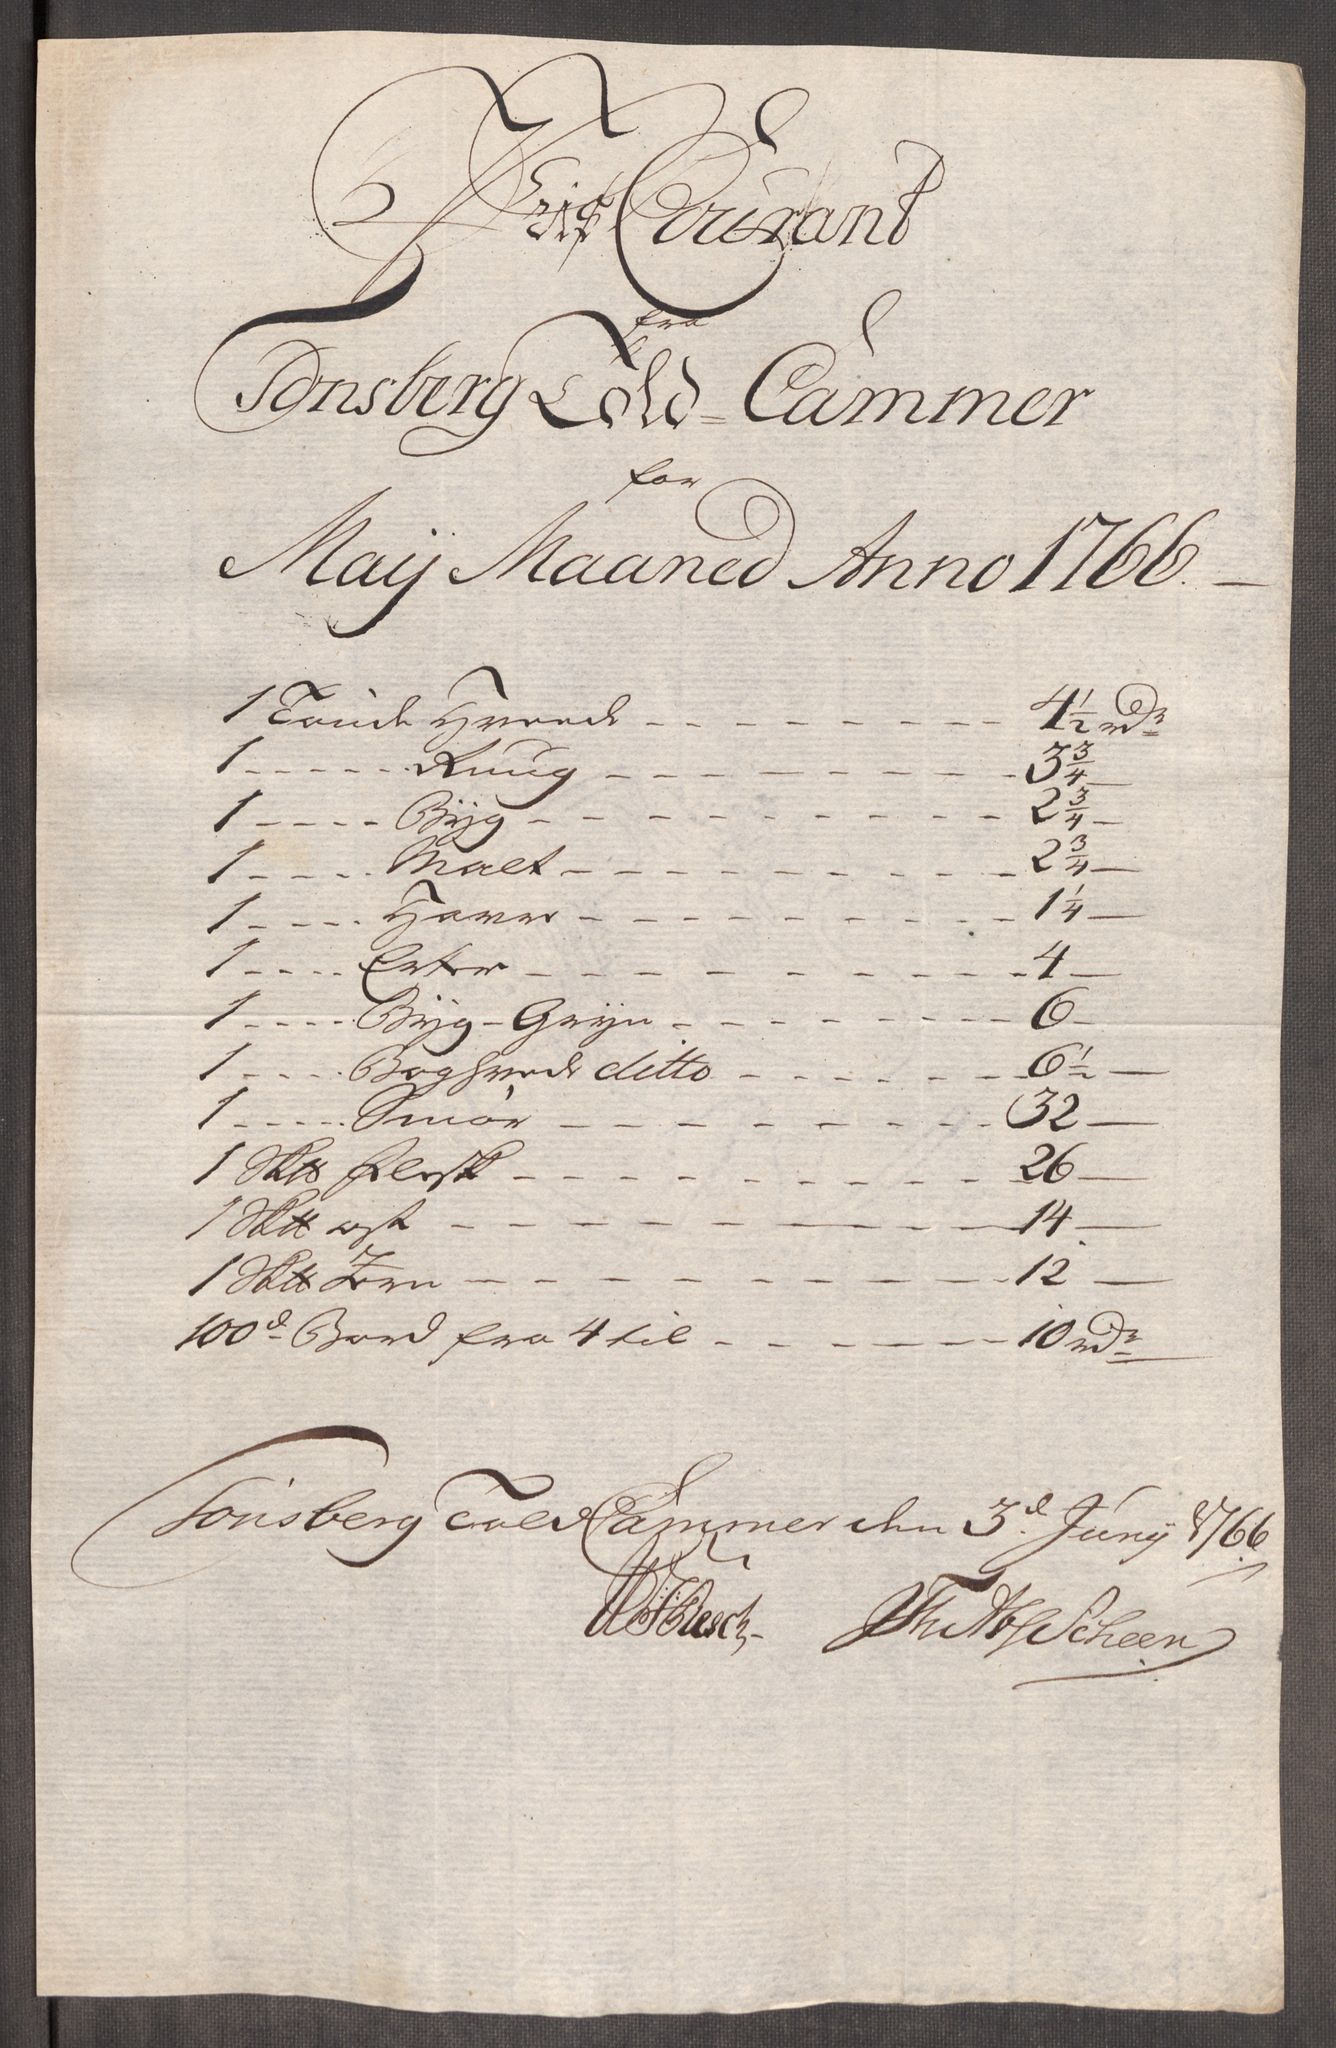 Priis Courant
fra
Tønsberg Told-Cammer
for
Maij Maaned Anno 1766.
1 Tønde Hveede 4 1/2 rdr
1 Ruug 3 3/4
1 Bÿg 2 3/4
1 Malt 2 3/4
1 Havre 1 1/4
1 Erter 4
1 Bÿg-Grÿn 6
1 Boghvede ditto 6 1/2
1 Smør 32
1 Sk℔ flesk 26
1 Sk℔ ost 14
1 Sk℔ Jern 12
100d Bord fra 4 til 10 rdr
Tønsberg Told Cammer den 3d Junÿ 1766
Scheen